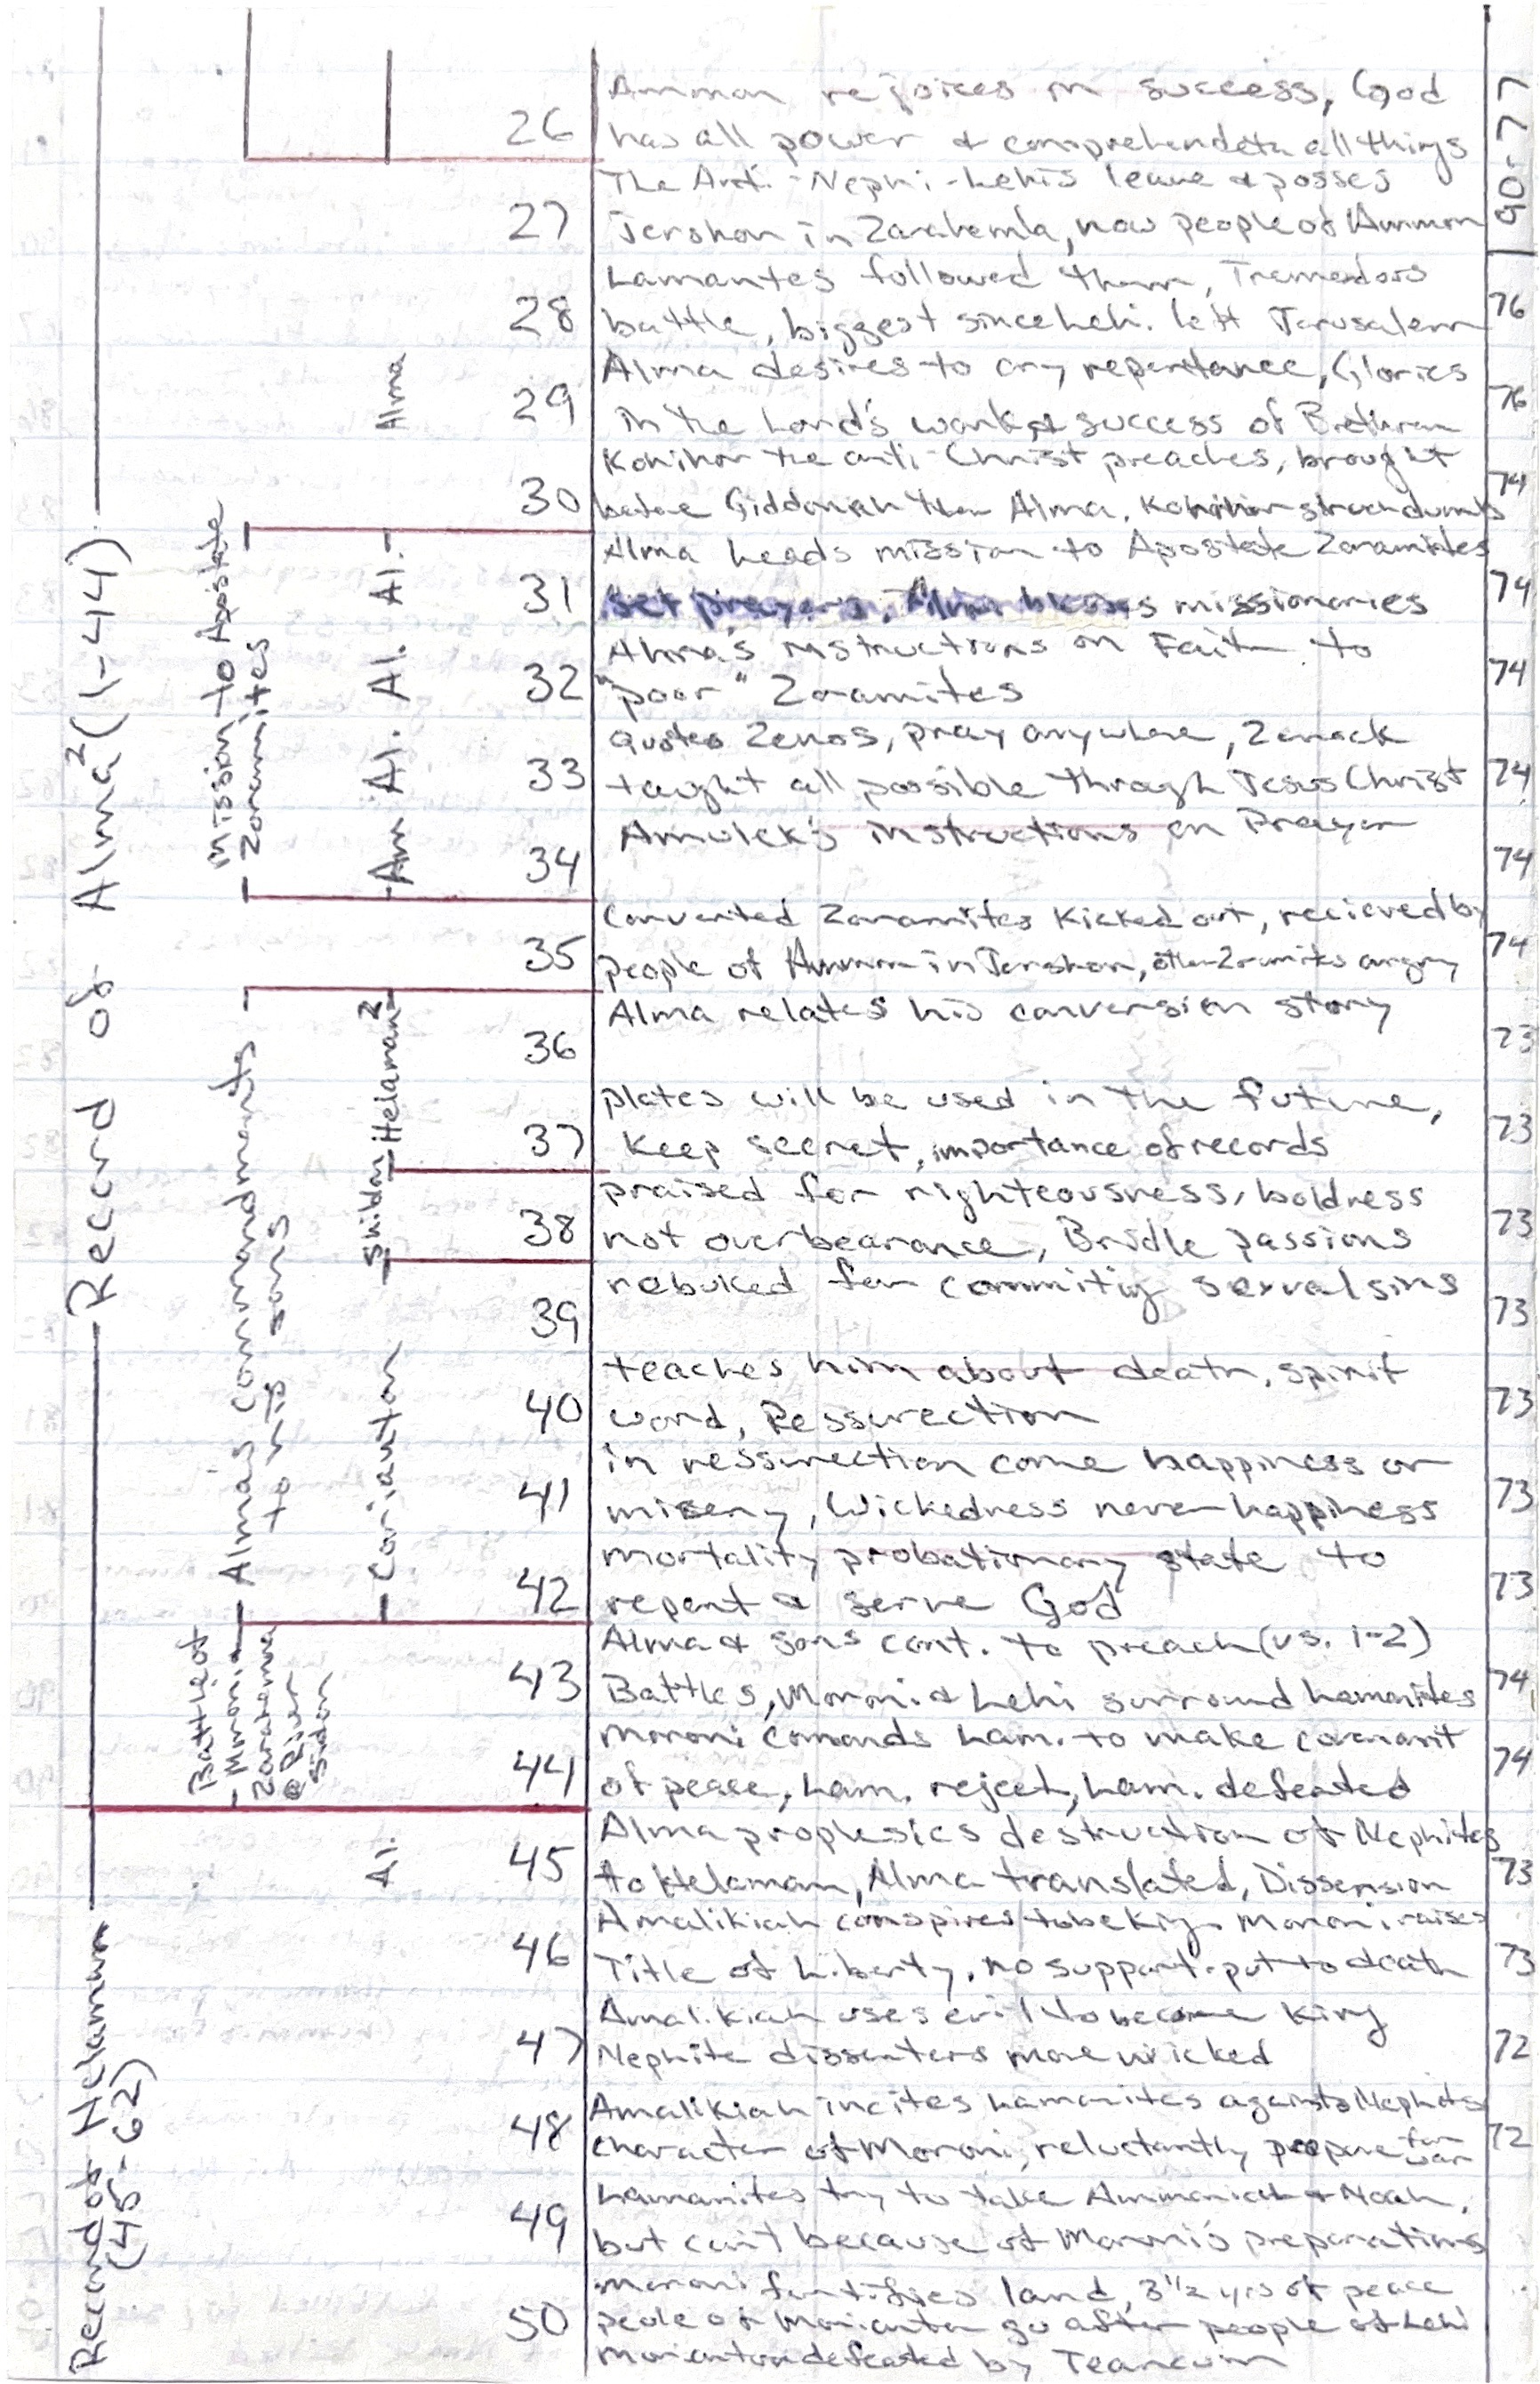 Record of Alma² (1-44)
Record of Helaman
(45-62)
Mission to Apostate
Zoramites
Alma's Commandments
to his sons
Battle of
Zarahemla
@ River
Sidon
Alma
Al.
Al.
Al.
Am
Helaman²
Shiblon
Corianton
Al.
26 Ammon rejoices in success, God
has all power & comprehendeth all things
90-77
27 The Anti-Nephi-Lehis leave & posses
Jershon in Zarahemla, now people of Ammon
28 Lamanites followed them, Tremendors
battle, biggest since Lehi left Jerusalem
76
29 Alma desires to cry repentance, Glories
in the Lord's work & success of Brethren
76
30 Korihor the anti-Christ preaches, brought
before Giddonah then Alma. Korihor struck dumb
74
31 Alma heads mission to Apostate Zoramites
set prayers, Alma blesses missionaries
74
32 Alma's instructions on Faith to
"poor" Zoramites
74
33 quotes Zenos, pray anywhere, Zenock
taught all possible through Jesus Christ
74
34 Amulek's instructions on Prayer
74
35 Converted Zoramites Kicked out, recieved by
people of Ammon in Jershon, other Zoramites angry
74
36 Alma relates his conversion story
73
37 plates will be used in the future,
Keep secret, importance of records
73
38 praised for righteousness, boldness
not overbearance, Bridle passions
73
39 rebuked for commiting sexual sins
73
40 teaches him about death, spirit
word, Ressurection
73
41 in ressurection come happiness or
misery, Wickedness never happiness
73
42 mortality probationary state to
repent & serve God
73
43 Alma & sons cont. to preach (vs. 1-2)
Battles, Moroni & Lehi surround Lamanites
74
44 Moroni Comands Lam. to make covenant
of peace, Lam. reject, Lam. defeated
74
45 Alma prophesies destruction of Nephites
to Helaman, Alma translated, Dissension
73
46 Amalikiah conspires to be king. Moroni raises
Title of Liberty, no support-put to death
73
47 Amalikiah uses evil to become King
Nephite dissenters more wicked
72
48 Amalikiah incites Lamanites against Nephites
Character of Moroni, reluctantly prepare for war
72
49 Lamanites try to take Ammoniah & Noah,
but can't because of Moroni's preparations
50 Moroni fortifies land, 3 1/2 yrs of peace
peole of Morianton go after people of Lehi
Morianton defeated by Teancum